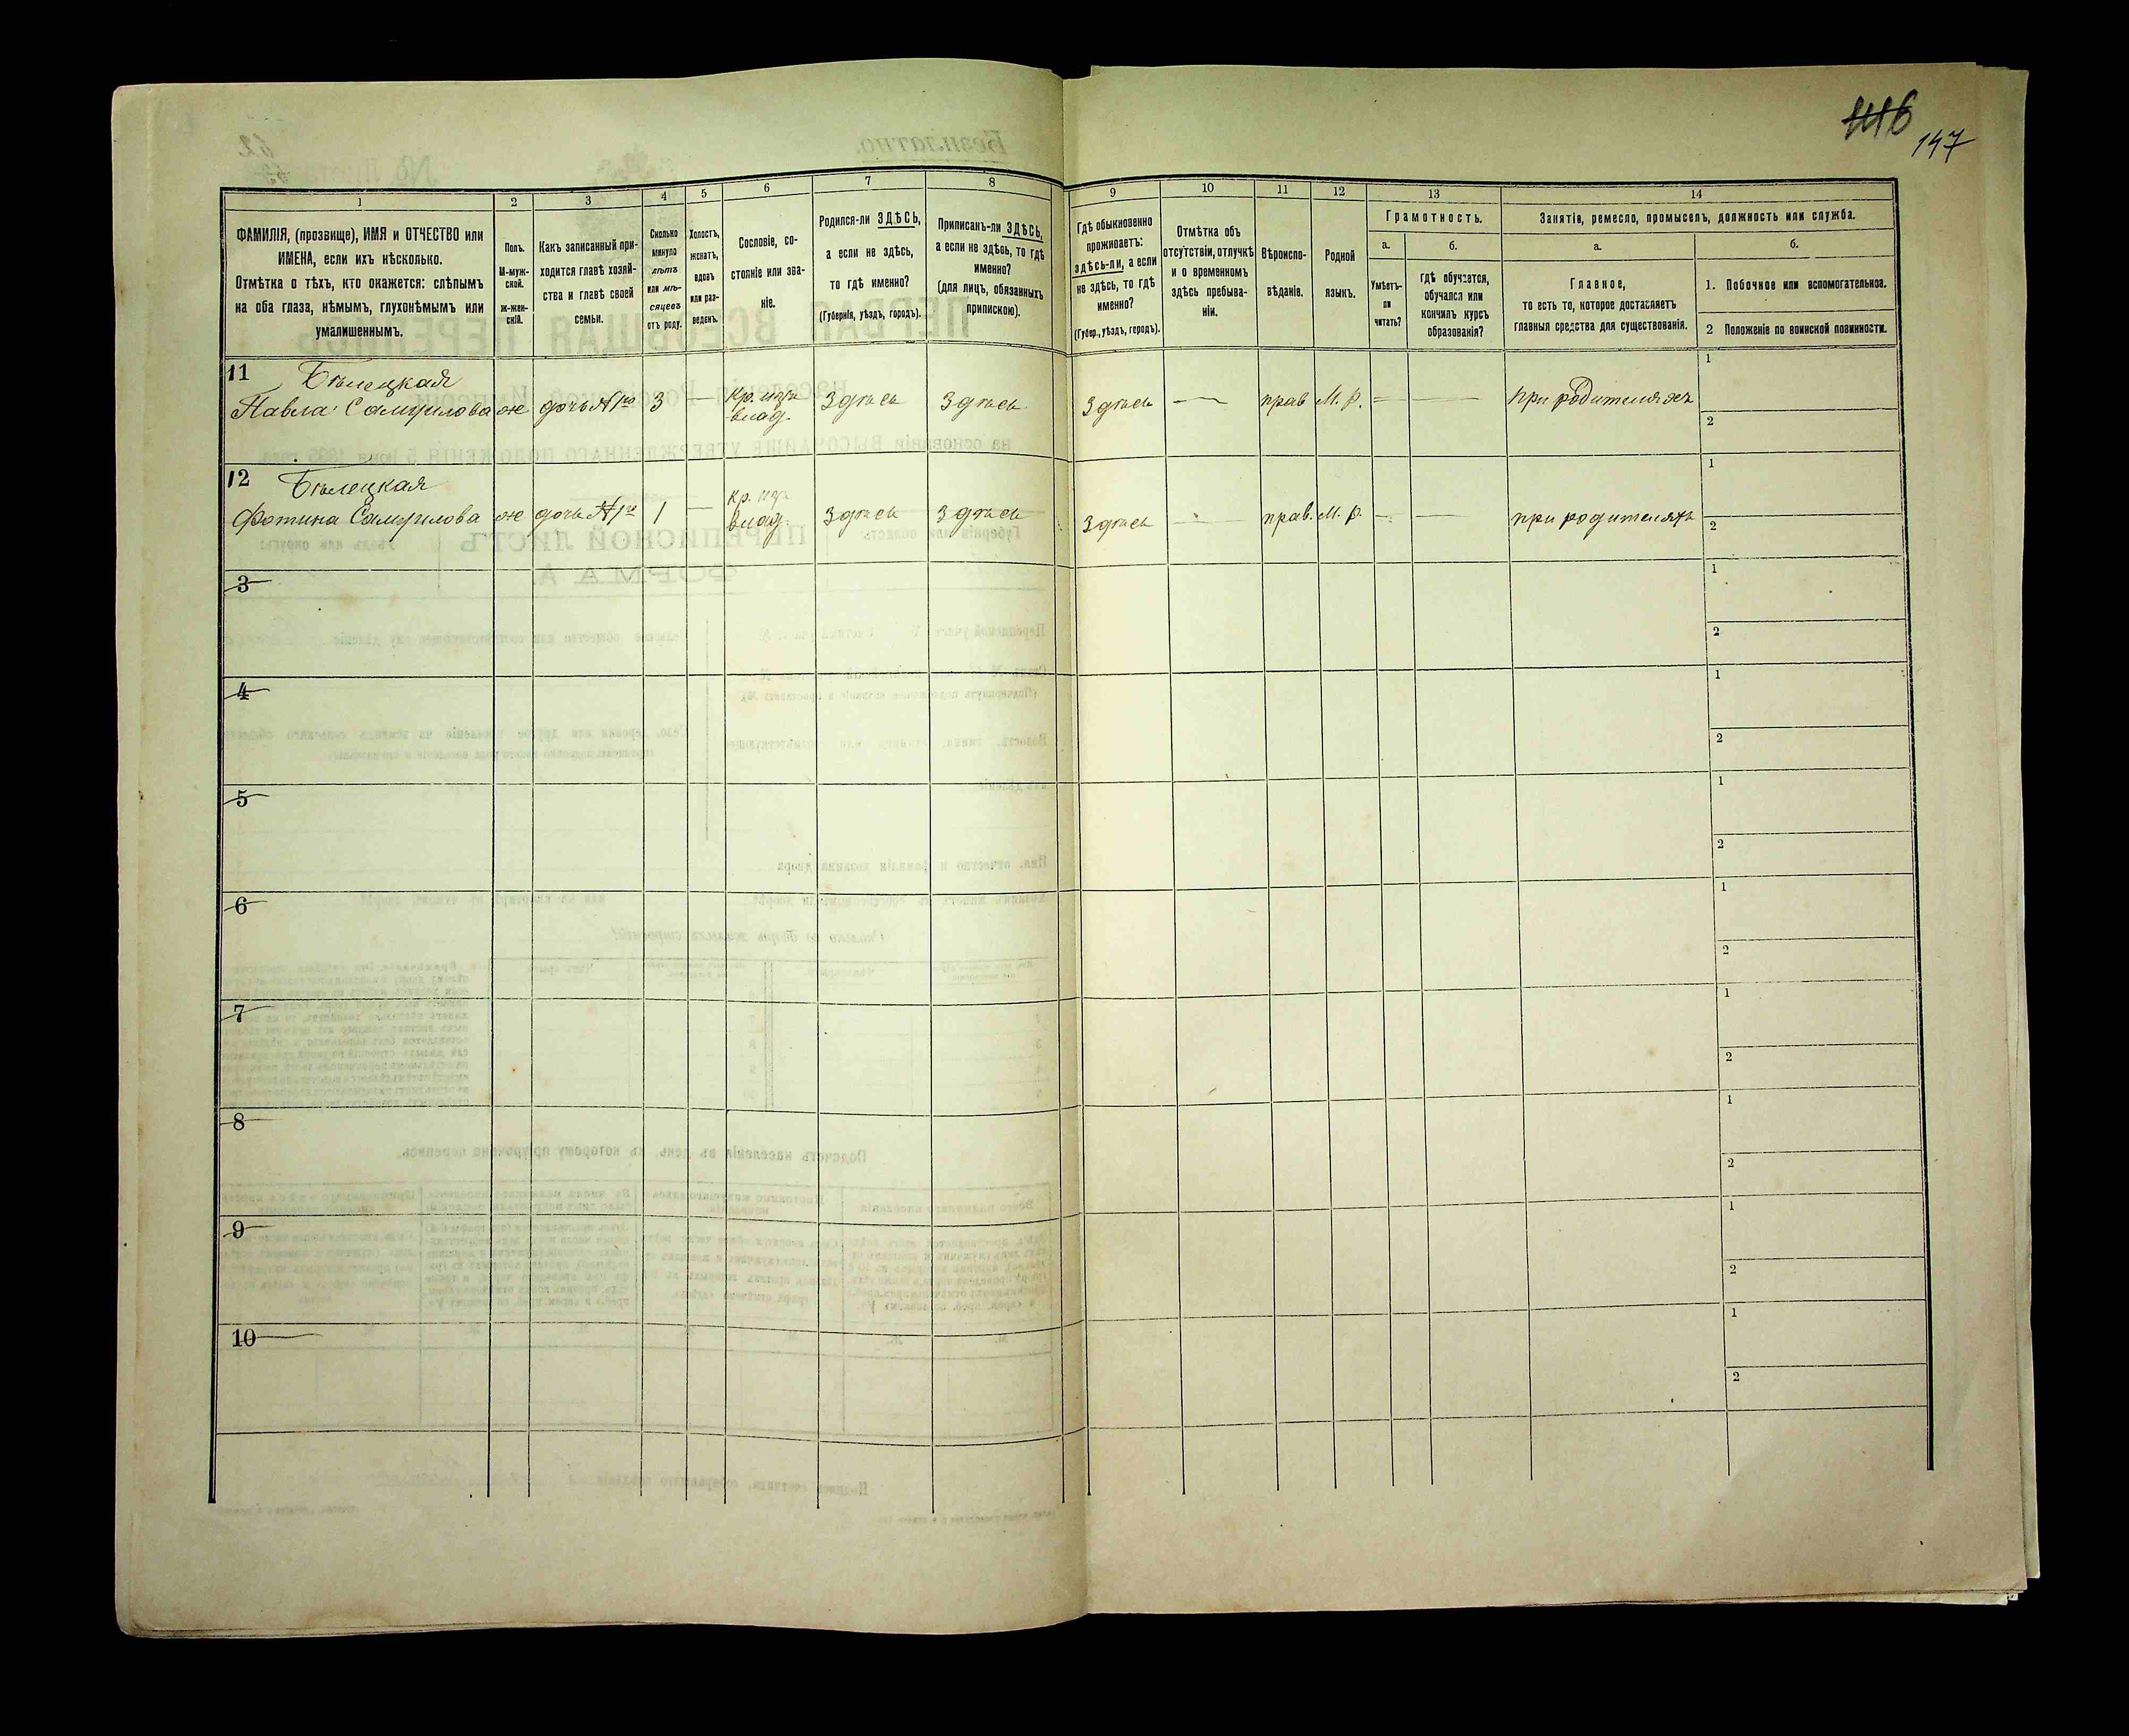 146
147
1
2
3
4
5
6
7
8
9
10
11
12
13
14
ФАМИЛІЯ, (прозвище), ИМЯ и ОТЧЕСТВО или
ИМЕНА, если ихъ нѣсколько.
Отмѣтка о тѣхъ, кто окажется: слѣпымъ
на оба глаза, нѣмымъ, глухонѣмымъ или
умалишеннымъ.
Полъ.
М-муж-
ской.
ж-жен-
скій.
Какъ записанный при-
ходится главѣ хозяй-
ства и главѣ своей
семьи.
Сколько
минуло
лѣтъ
или мѣ-
сяцевъ
отъ роду.
Холостъ,
женатъ,
вдовъ
или раз-
веденъ.
Сословіе, со-
стояніе или зва-
ніе.
Родился-ли ЗДѢСЬ,
а если не здѣсь,
то гдѣ именно?
(Губернія, уѣздъ, городъ).
Приписанъ-ли ЗДѢСЬ,
а если не здѣсь, то гдѣ
именно?
(для лицъ, обязанныхъ
припискою).
Гдѣ обыкновенно
проживаетъ:
здѣсь-ли, а если
не здѣсь, то гдѣ
именно?
(Губер., уѣздъ, городъ).
Отмѣтка объ
отсутствіи, отлучкѣ
и о временномъ
здѣсь пребыва-
ніи.
Вѣроиспо-
вѣданіе.
Родной
языкъ.
Грамотность.
а.
б.
Умѣетъ-
ли
читать?
гдѣ обучается,
обучался или
кончилъ курсъ
образованія?
Занятіе, ремесло, промыселъ, должность или служба.
а.
б.
Главное,
то есть то, которое доставляетъ
главныя средства для существованія.
1. Побочное или вспомогательное.
2 Положеніе по воинской повинности.
11 Бѣлецкая
Павла Самуилова ж дочь №1го 3 — кр. изъ влад. Здѣсь Здѣсь Здѣсь — прав М. р. — — при родителяхъ
1
2
12 Бѣлецкая
Фотина Самуилова ж дочь №1го 1 — кр. изъ влад. Здѣсь Здѣсь Здѣсь — прав. М. р. — — при родителяхъ
1
2
3
1
2
4
1
2
5
1
2
6
1
2
7
1
2
8
1
2
9
1
2
10
1
2